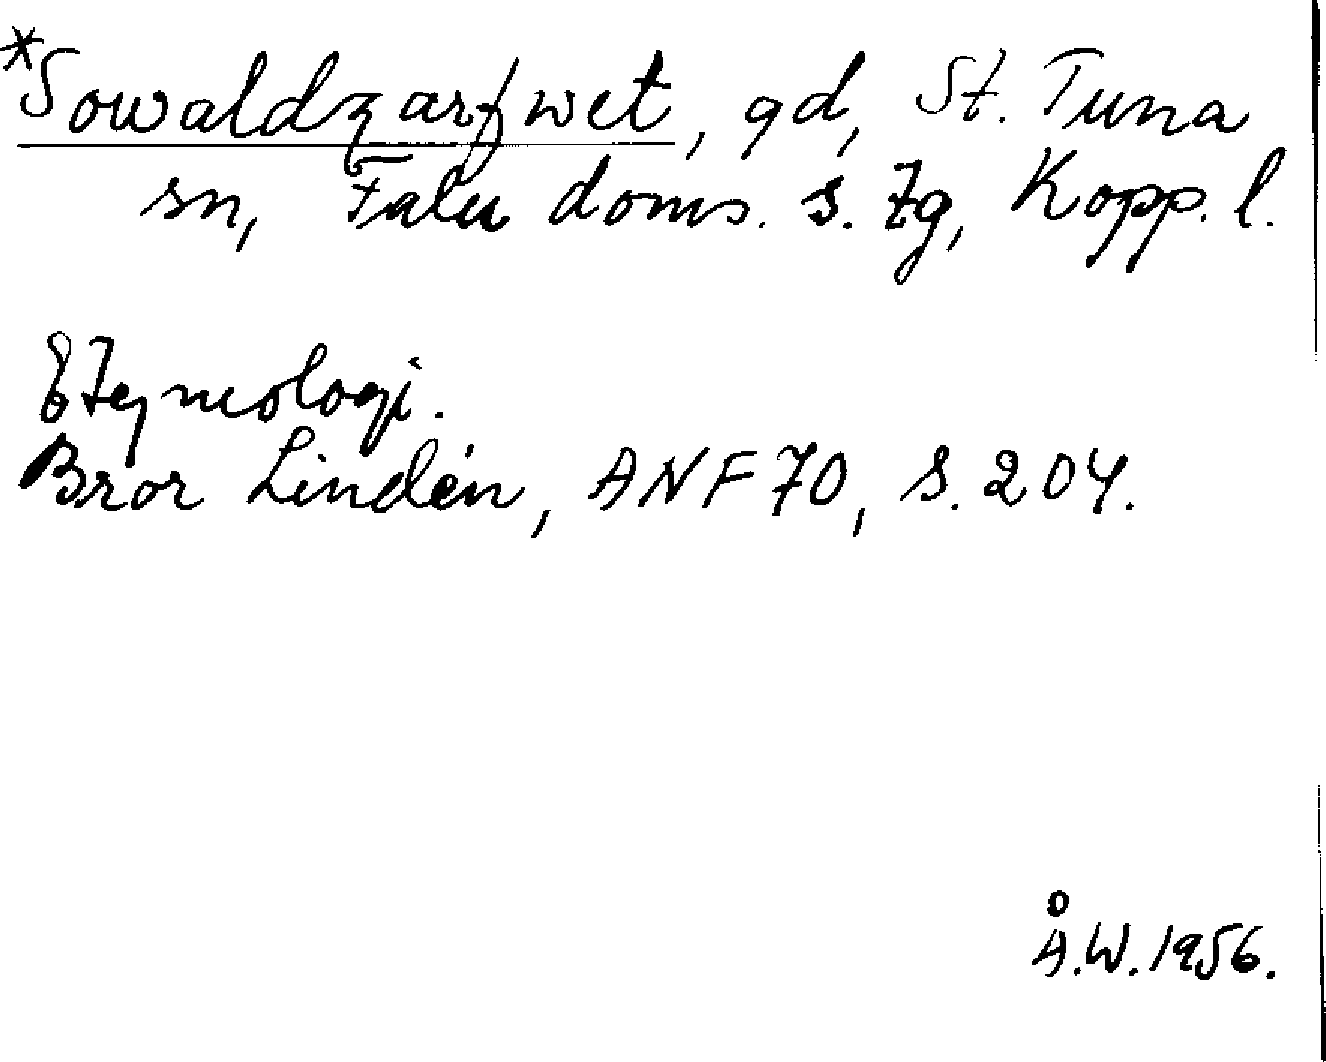 *Sowaldzarfwet, gd, St. Tuna
sn, Falu doms. s. tg, Kopp. l.
Etymologi.
Bror Lindén, ANF 70, s. 204.
Å.W. 1956.